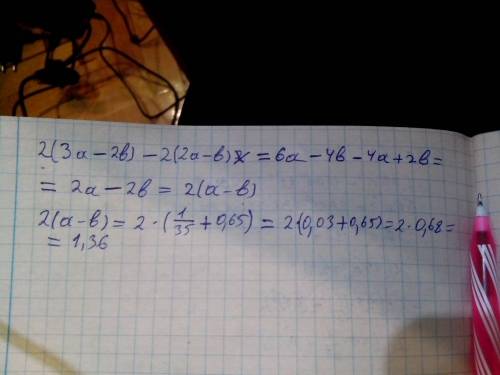 2(3a-2b)-2(2a-b) = 6a-4b-4a+2b=
= 2a-2b = 2(a-b)
2(a-b) = 2·(1/35+0,65) = 2·(0,03+0,65)=2·0,68=
= 1,36